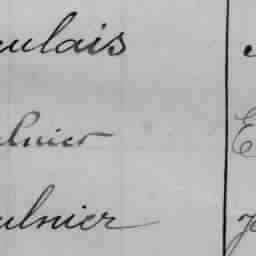 ulais
lnier E
ulnier